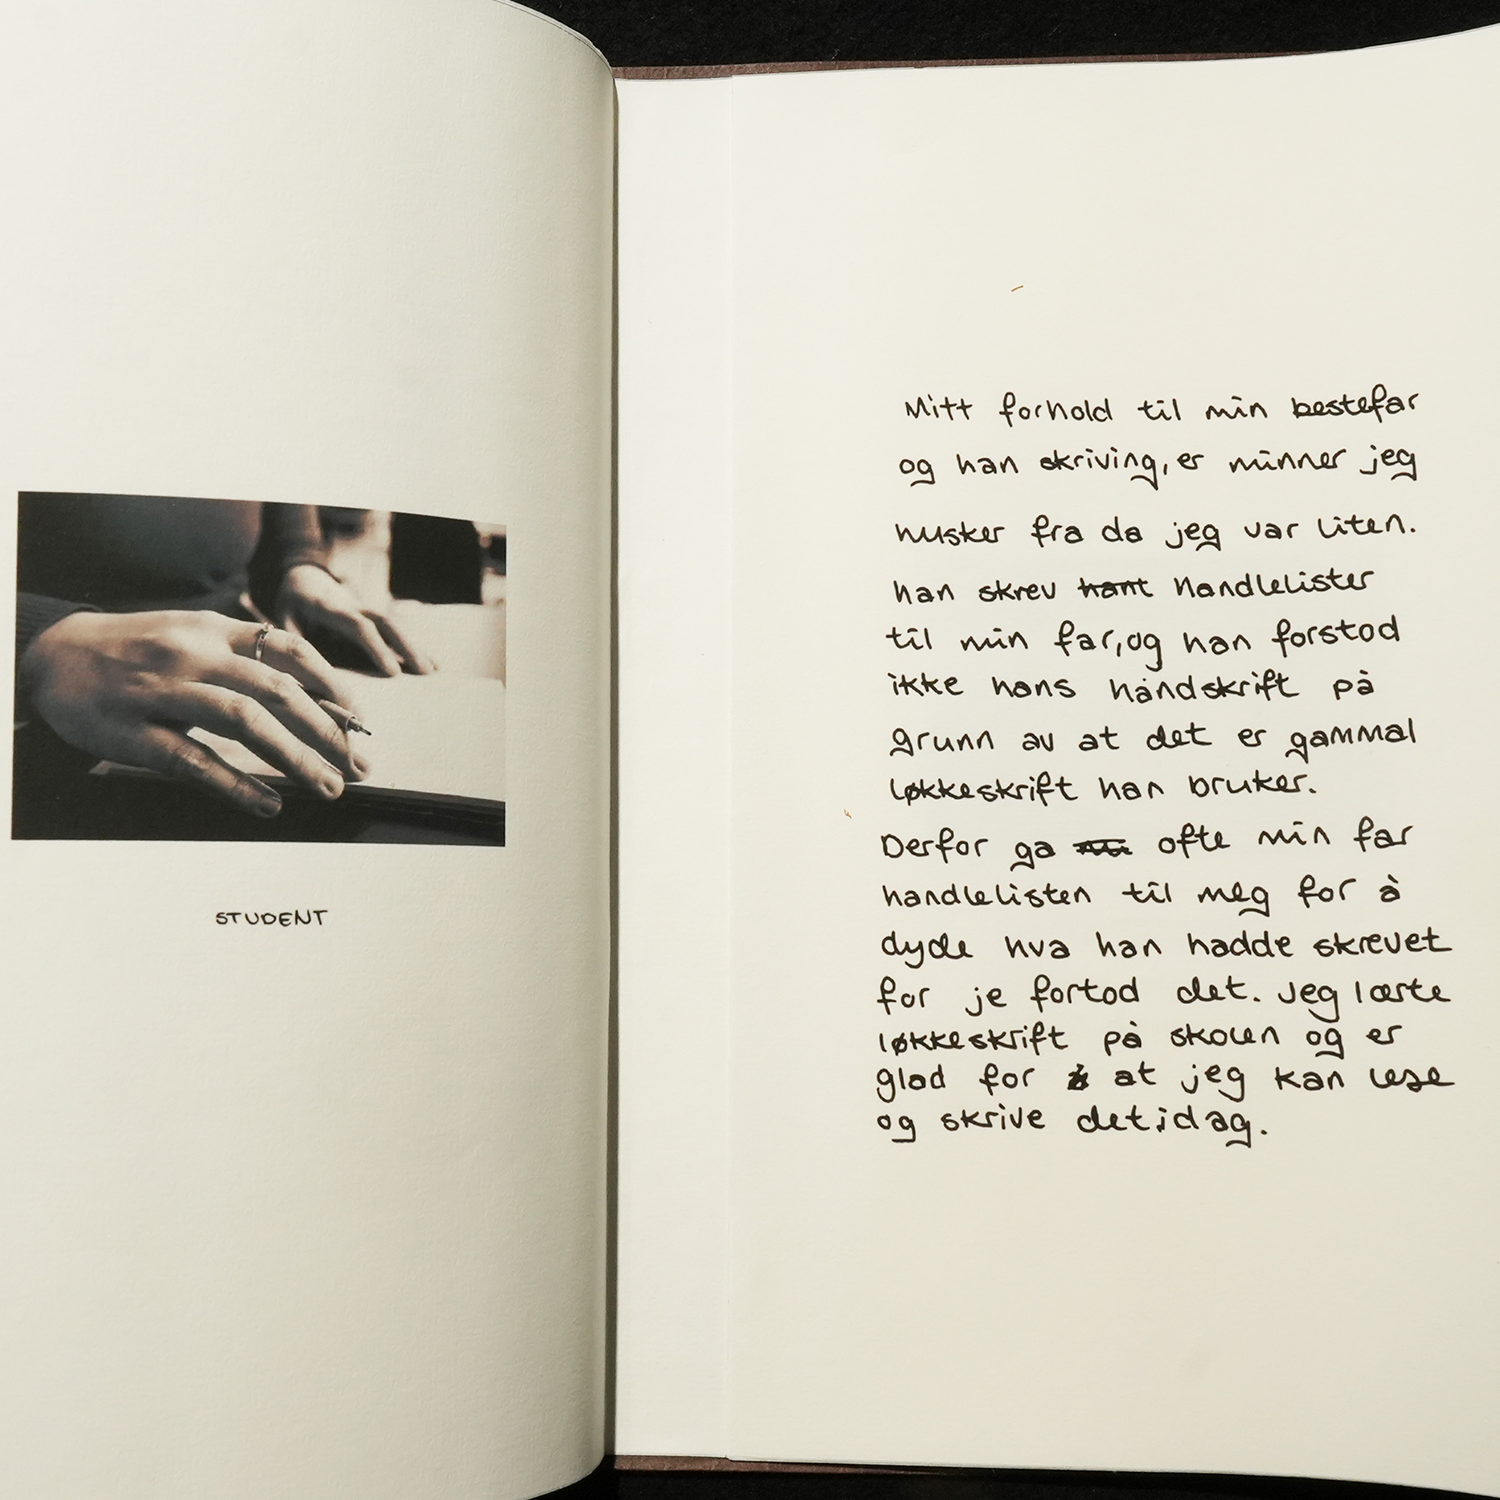 STUDENT
Mitt forhold til min bestefar
og han skriving, er minner jeg
husker fra da jeg var liten.
han skrev hant Handlelister
til min far, og han forstod
ikke hans håndskrift på
grunn av at det er gammal
løkkeskrift han bruker.
Derfor ga ofte min far
handlelisten til meg for å
dyde hva han hadde skrevet
for je fortod det. Jeg lærte
løkkeskrift på skolen og er
glad for at jeg kan lese
og skrive det idag.